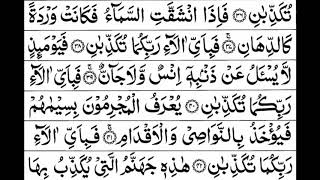 تُكَذِّبٰنِ ﴿۳۶﴾ فَاِذَا انْشَقَّتِ السَّمَآءُ فَكَانَتْ وَرْدَةً
كَالدِّهَانِ ﴿۳۷﴾ فَبِاَىِّ اٰلَآءِ رَبِّكُمَا تُكَذِّبٰنِ ﴿۳۸﴾ فَيَوْمَئِذٍ
لَّا يُسْئَلُ عَنْ ذَنْۢبِهٖۤ اِنْسٌ وَّلَا جَآنٌّ ﴿۳۹﴾ فَبِاَىِّ اٰلَآءِ
رَبِّكُمَا تُكَذِّبٰنِ ﴿۴۰﴾ يُعْرَفُ الْمُجْرِمُوْنَ بِسِيْمٰهُمْ
فَيُؤْخَذُ بِالنَّوَاصِىْ وَالْاَقْدَامِ ﴿۴۱﴾ فَبِاَىِّ اٰلَآءِ
رَبِّكُمَا تُكَذِّبٰنِ ﴿۴۲﴾ هٰذِهٖ جَهَنَّمُ الَّتِىْ يُكَذِّبُ بِهَا